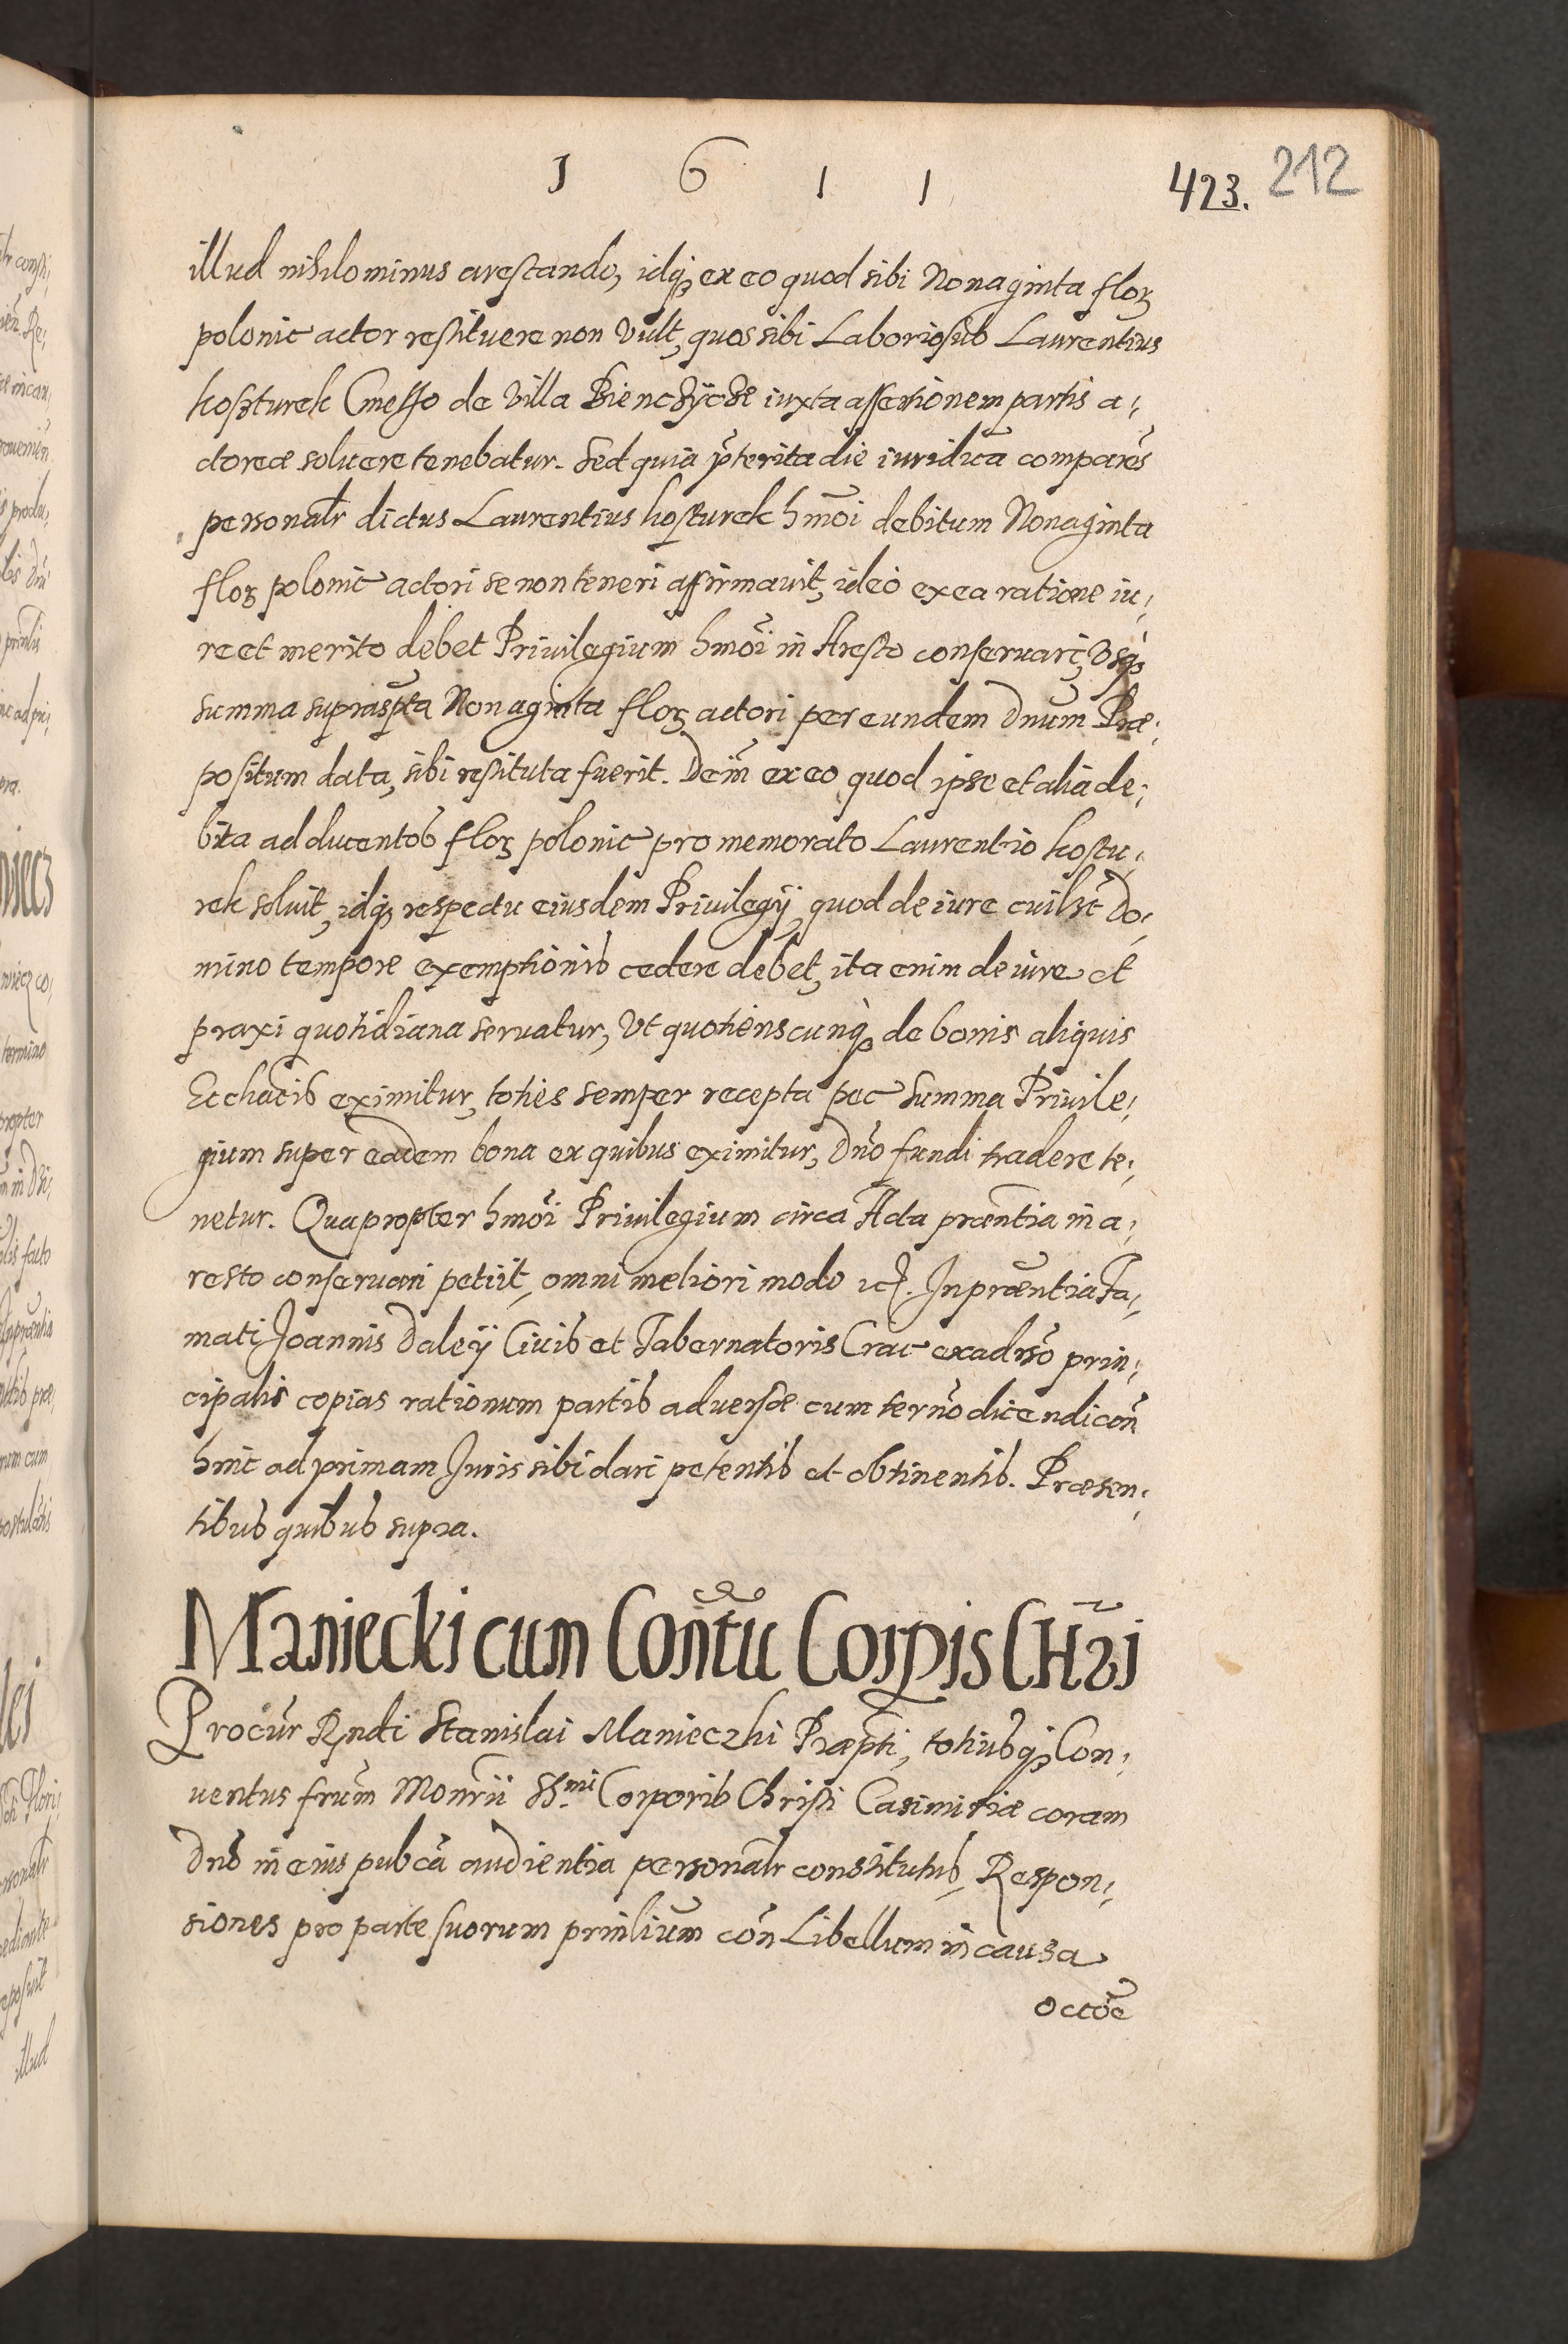 1 6 1 1
423. 212
illud nihilominus arestando, idq₃ ex eo quod sibi Nonaginta floꝝ
polonic actor restituere non Vult, quos sibi Laboriosus Laurentius
kosturek Cmetho de Villa Bienczÿcze iuxta assertionem partis a;
ctoreæ soluere tenebatur. Sed quia p̃terita die iuridica comparẽs
personalr dictus Laurentius kosturek hmõi debitum Nonaginta
floꝝ polonic actori se non teneri affirmauit, ideo ex ea ratione iu;
re et merito debet Priuilegium hmõi in Aresto conseruari, Vsq₃
summa suprasp̃ta Nonaginta floꝝ actori per eundem Dnũm Præ;
positum data, sibi restituta fuerit. Deiñ ex eo quod ipse et alia de;
bita ad ducentos floꝝ polonic pro memorato Laurentio kostu;
rek soluit, idq₃ respectu eiusdem Priuilegÿ, quod de iure cuilbt Do;
mino tempore exemptionis cedere debet, ita enim de iure et
praxi quotidiana seruatur, Vt quotienscunq₃ de bonis aliquis
Ecclıacis eximitur, toties semper recepta pec summa Priuile;
gium super eadem bona ex quibus eximitur, Dño fundi tradere te;
netur. Quapropter hmõi Priuilegium circa Acta præntia in a;
resto conseruari petiit, omni meliori modo icꝭ. In præntia Fa;
mati Joannis Daleÿ Ciuis et Tabernatoris Crac ex aduso prin;
cipalis copias rationum partis aduersæ cum terñno dicendi coñ
hinc ad primam Juris sibi dari petentis et obtinentis. Præsen;
tibus quibus supra.
Maniecki cum Conñtu Corpis CHri
Procũr Rndi Stanislai Manieczki Præpti, totiusq₃ Con;
uentus frũm Monrii SSmi Corporis Christi Casimiriæ coram
Dnõ in eius pubca audientia personalr constitutus, Respon;
siones pro parte suorum prinlium coñ Libellum in causa
occõe